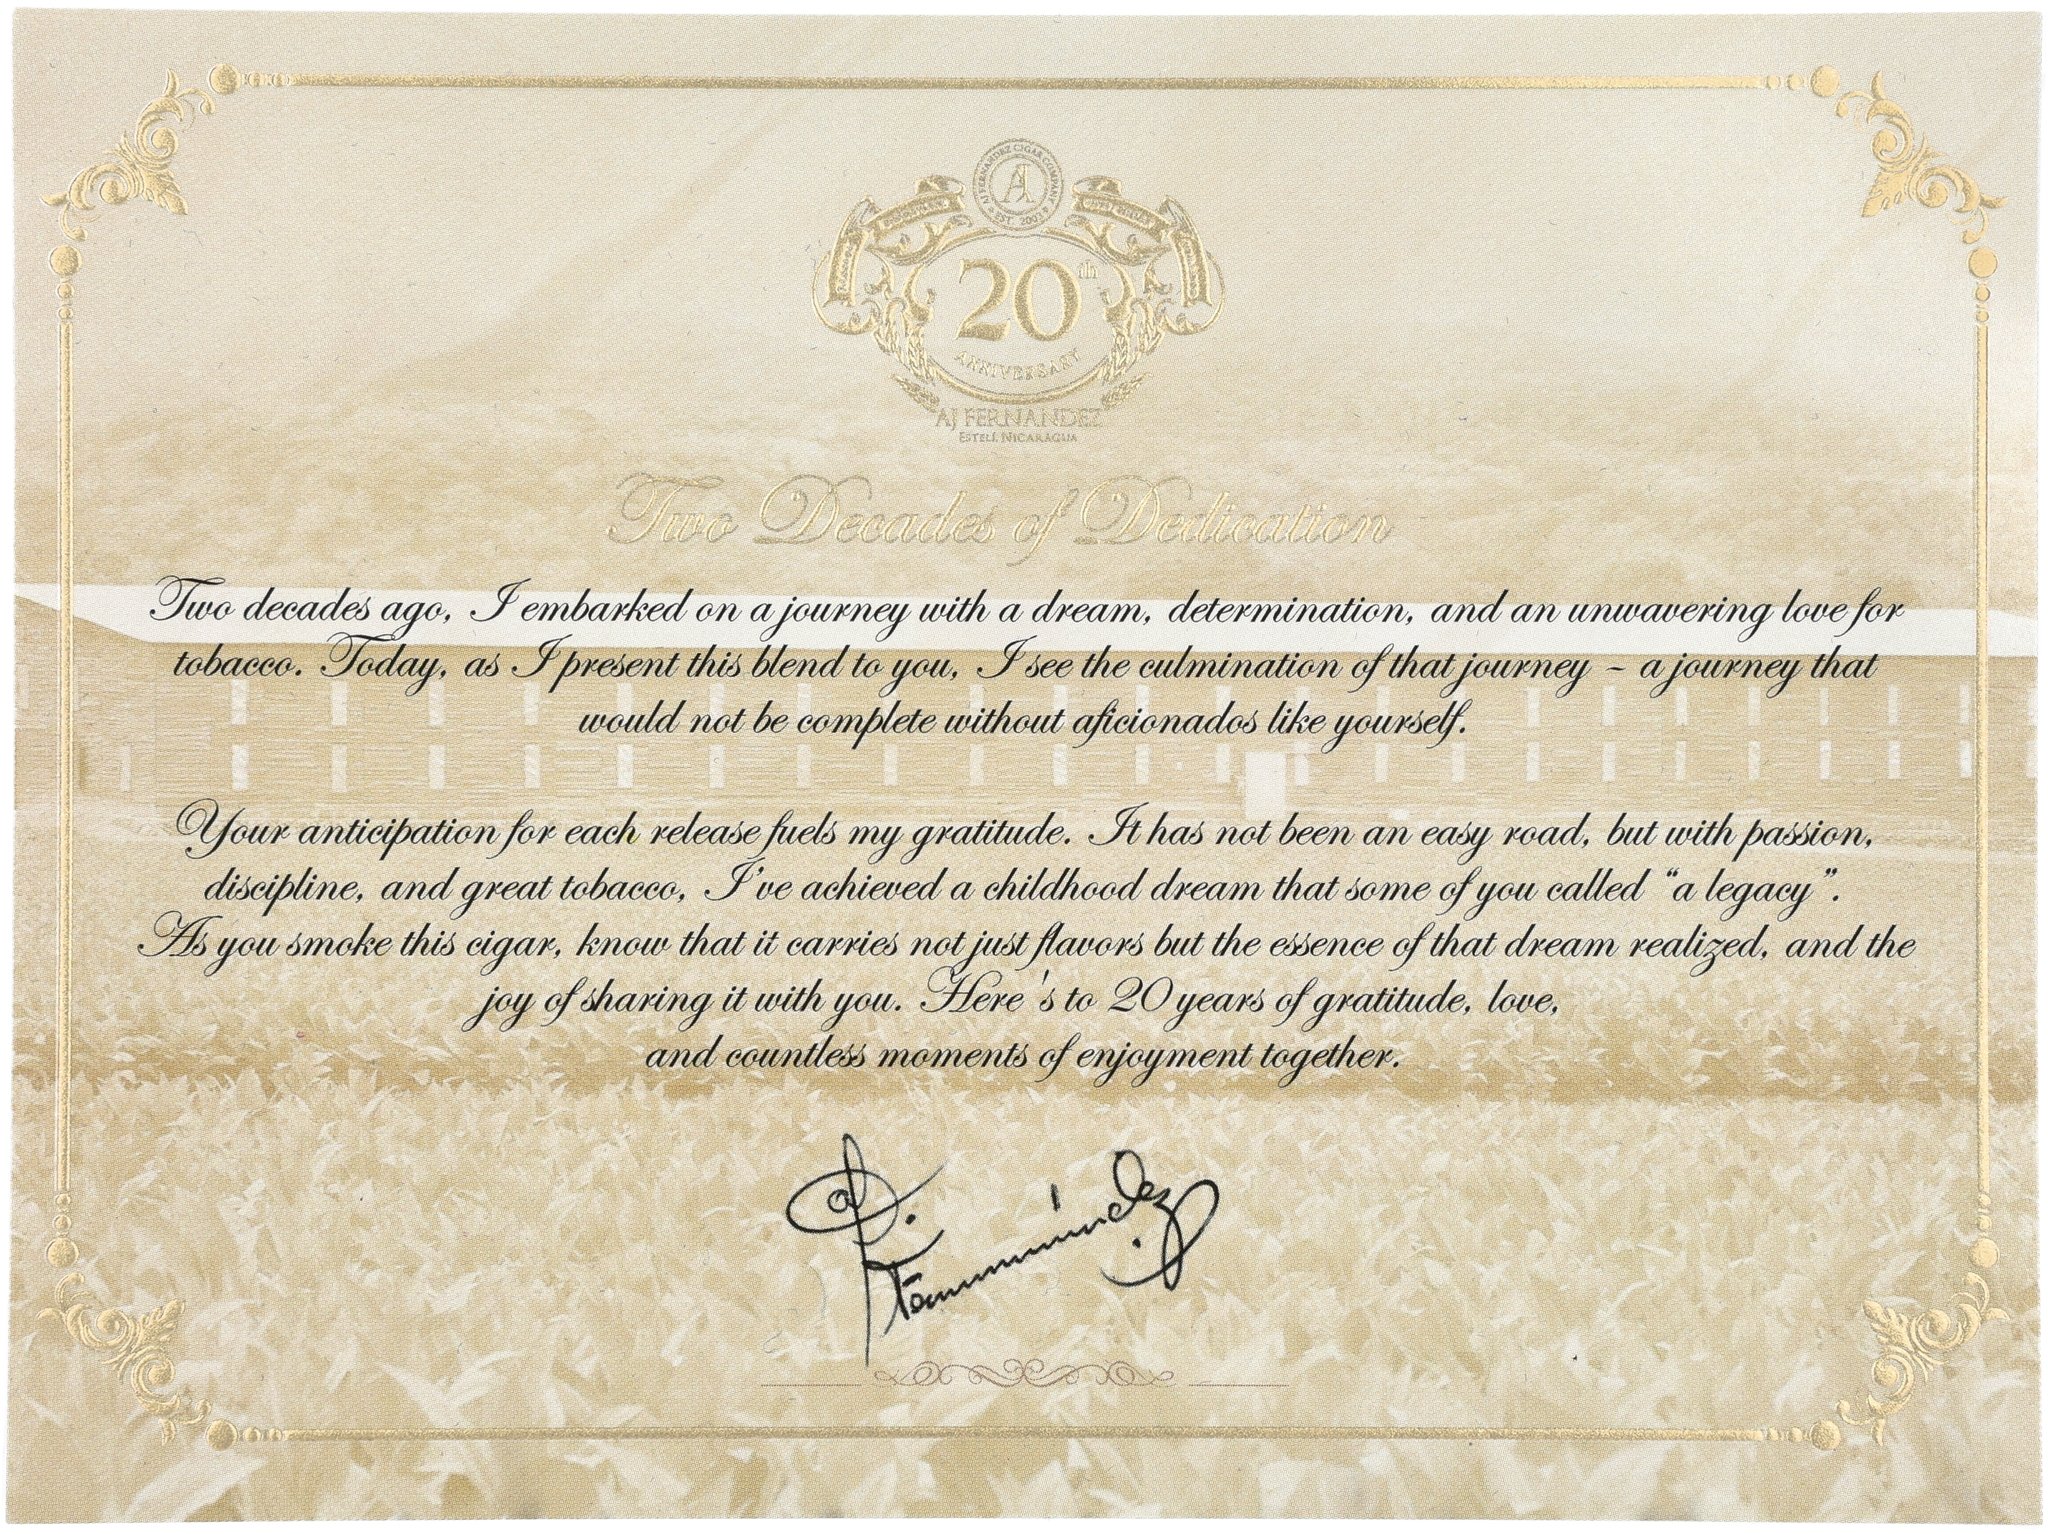 AJ FERNANDEZ CIGAR COMPANY
AJ
EST. 2003
20th
ANNIVERSARY
AJ FERNANDEZ
ESTELÍ, NICARAGUA
Two Decades of Dedication
Two decades ago, I embarked on a journey with a dream, determination, and an unwavering love for
tobacco. Today, as I present this blend to you, I see the culmination of that journey ~ a journey that
would not be complete without aficionados like yourself.
Your anticipation for each release fuels my gratitude. It has not been an easy road, but with passion,
discipline, and great tobacco, I've achieved a childhood dream that some of you called “a legacy”.
As you smoke this cigar, know that it carries not just flavors but the essence of that dream realized, and the
joy of sharing it with you. Here's to 20 years of gratitude, love,
and countless moments of enjoyment together.